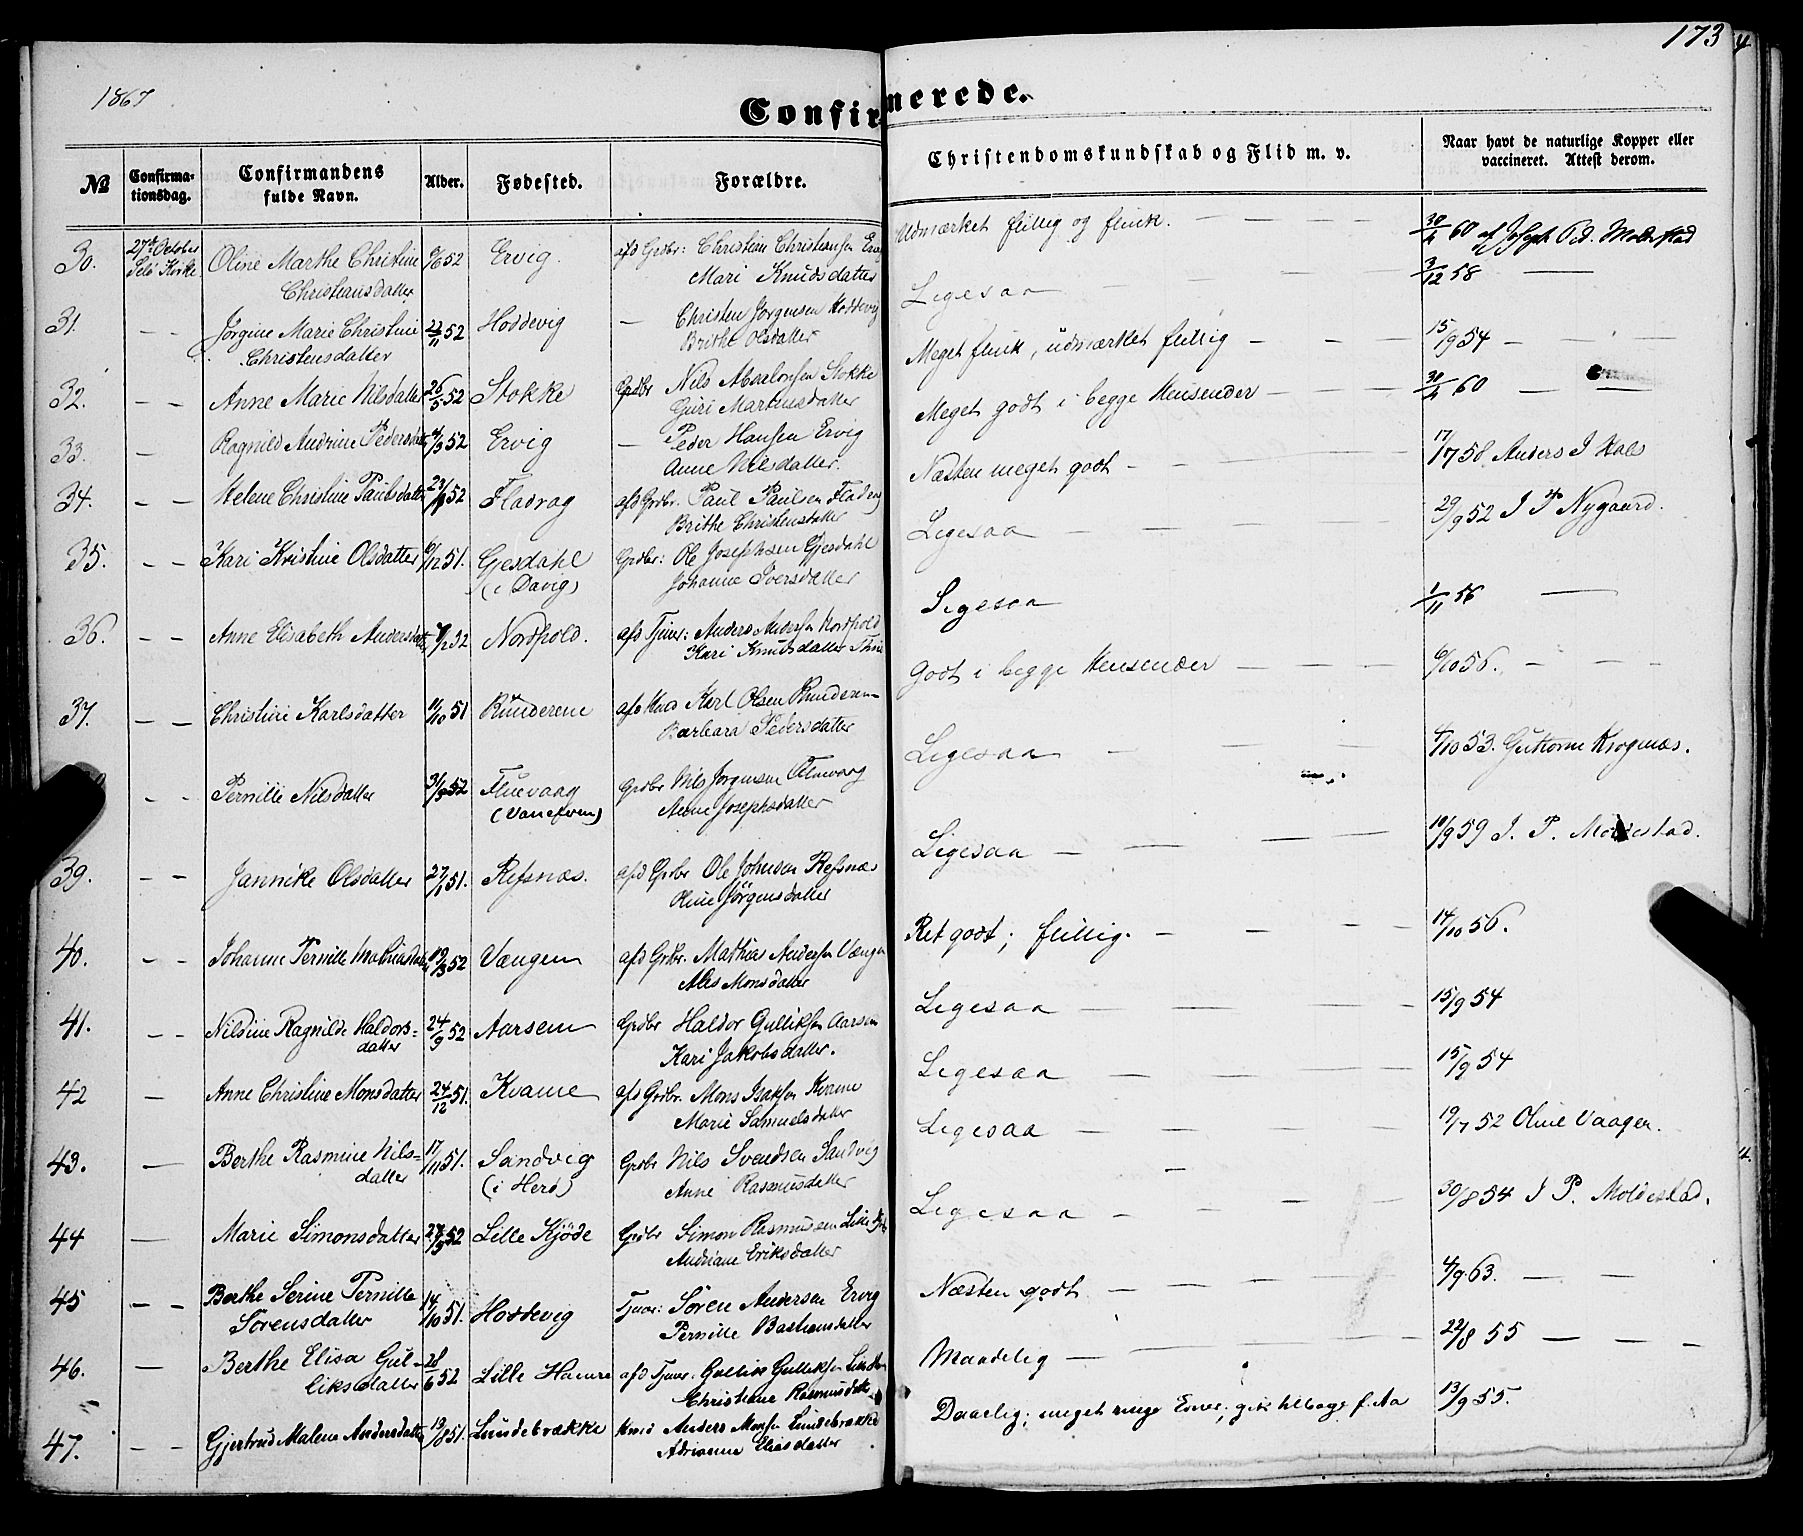 173
1867
Confirmerede.
No
Confirmationsdag.
Confirmandens fulde Navn.
Alder.
Fødested.
Forældre.
Christendomskundskab og Flid m. v.
Naar havt de naturlige Kopper eller vaccineret. Attest derom.
30. 27de October Selø Kirke Oline Marthe Christine Christiansdatter 52 Ervig. afd Grdbr: Christian Christiansen
Mari Knudsdatter
Udmærket flittig og flink. 30/4 60
31. Jørgine Marie Christine Christensdatter 22/11 52 Hoddevig Christen Jørgensen Hoddevig
Brithe Olsdatter
Ligesaa 3/12 58
32. Anne Marie Nilsdatter 26/5 52 Stokke Grdbr Nils Absalonsen Stokke
Guri Martinusdatter
Meget flink, udmærket flittig 15/9 54
33. Ragnild Andrine 52 Ervig Peder Hansen Ervig
Anne Nilsdatter.
Meget godt i begge Hensender 30/4 60
34. Helene Christine Paulsdatter 52 Fladrag afd Grdbr. Paul Paulsen
Brithe Christensdatter
Næsten meget godt 17/7 58. Anders J Hals
35. Kari Kristine Olsdatter 6/12 51. Gjesdahl (i Davig) Grdbr: Ole Josephsen Gjesdahl
Johanne Iversdatter
Ligesaa 29/9 52 J P Nygaard.
36. Anne Elisabeth Andersdatter Nordpold. afd Tjener: Anders Andersen Nordpold
Kari Knudsdatter
Ligesaa 1/11 56
37. Christine Karlsdatter 11/10 51 Runderene afd Huud Karl Olsen Runderene
Barbara Pedersdatter
Godt i begge Hensender 6/10 56.
Pernille Nilsdatter 31/3 52 Fluevaag Grdbr Nils Jørgensen Fluevaag
Anne Josephsdatter
Ligesaa 4/10 53. Guttorm Krogenæs.
39. Jannike Olsdatter 51. Refsnæs. afd Grdbr Ole Johnsen Refsnæs
Oline Jørgensdatter
Ligesaa 10/9 59 J. P. Moldestad.
40. Johanne Pernille 52 Vængen afd Grdbr. Mathias Andersen Vængen
Alis Monsdatter
Ret godt; flittig. 14/10 56.
41. Nilsine Ragnilde Haldorsdatter 24/9 52 Aarsem Grdbr Haldor Gulliksen Aarsem
Kari Jakobsdatter.
Ligesaa 15/9 54
42 Anne Christine Monsdatter 24/12 51. Kvame afd Grdbr. Mons Isaksen Kvame
Marie Samuelsdatter
Ligesaa 15/9 54
43. Berthe Rasmine Nilsdatter 17/11 51. Sandvig (i Herø) Grdbr Nils Svendsen Sandvig
Anne Rasmusdatter
Ligesaa 19/7 52 Oline Vaagen.
44 Marie Simonsdatter 52 Lille Kjøde Grdbr Simon Rasmussen Lille
Andriane Eriksdatter
Ligesaa 30/8 54 J P. Moldestad.
45 Berthe Serine Pernille Sørensdatter 14/10 51. Hoddevig Tjener: Søren Andersen Ervig
Pernille Bastiansdatter
Næsten godt 4/9 63.
46. Berthe Elisa Gulliksdatter 28/6 52 Lille Hamre afd Tjener. Gulliks Gulliksen
Christiane Rasmusdatter
Maadelig 22/8 55
47. Gjertrud Malena Andersdatter 19/8 51. Lundebrække Anders Monsen Lundebrække
Adrianne Eliasdatter
Daarlig; meget ringe Evne; gik tilbage f. Aa 13/9 55.